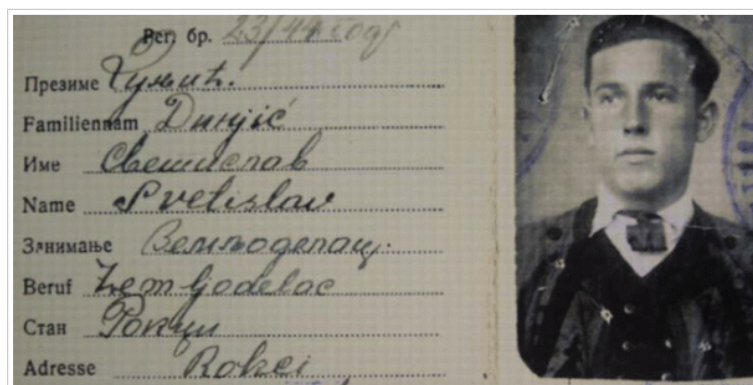 Рег. бр. 23/44 год
Презиме
Familiennam Dunjić
Име Светислав
Name Svetislav
Занимање Земљоделац.
Beruf Zemljodelac
Стан Рокци
Adresse Rokci